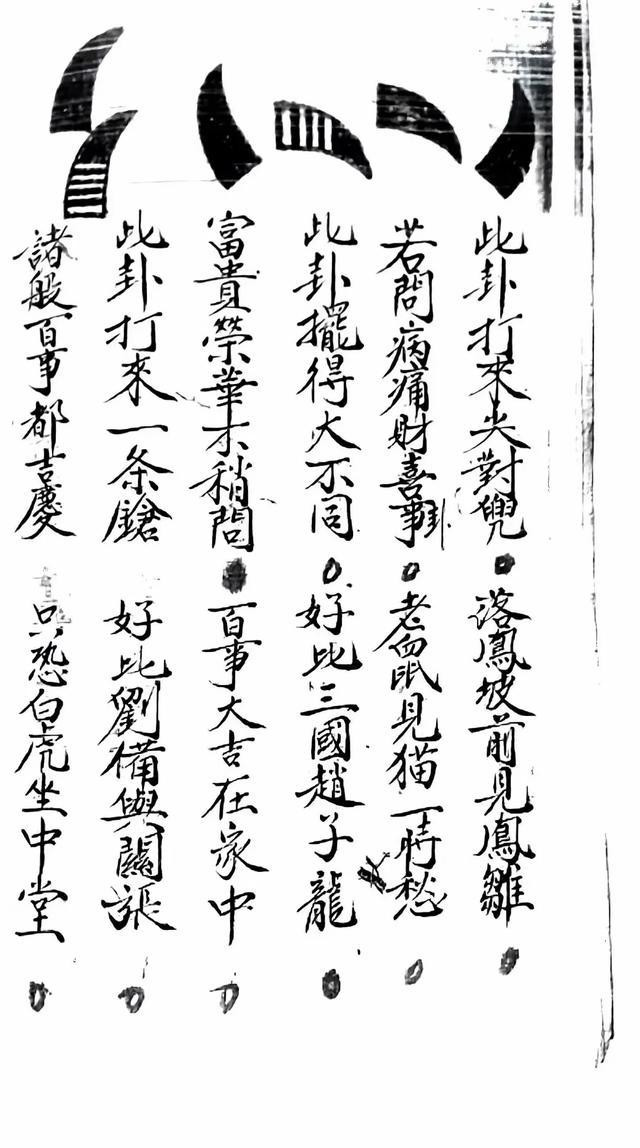 此卦打來尖對兜 落鳳坡前見鳳雛
若問病痛財喜事卦 老鼠見猫一時愁
此卦擺得大不同 好比三國趙子龍
富貴榮華不稍問 百事大吉在家中
此卦打來一条鎗 好比劉備與關張
諸般百事都吉慶 只恐白虎坐中堂